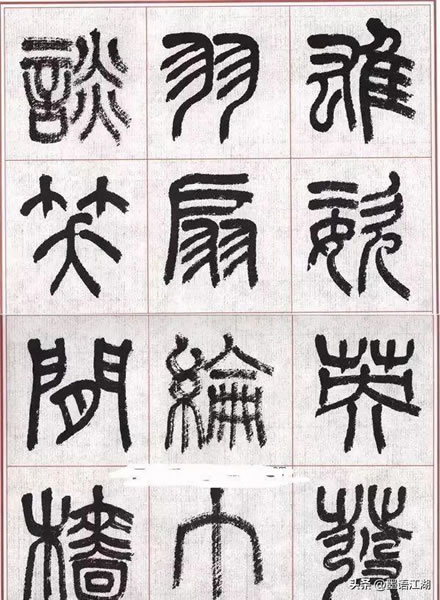 雄姿英發
羽扇綸巾
談笑間檣
头条 @墨语江湖